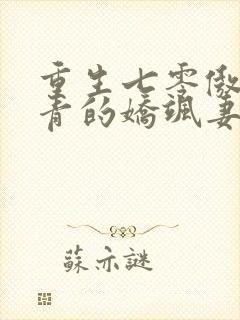 重生七零傲
青的嬌颯妻
蘇亦謎